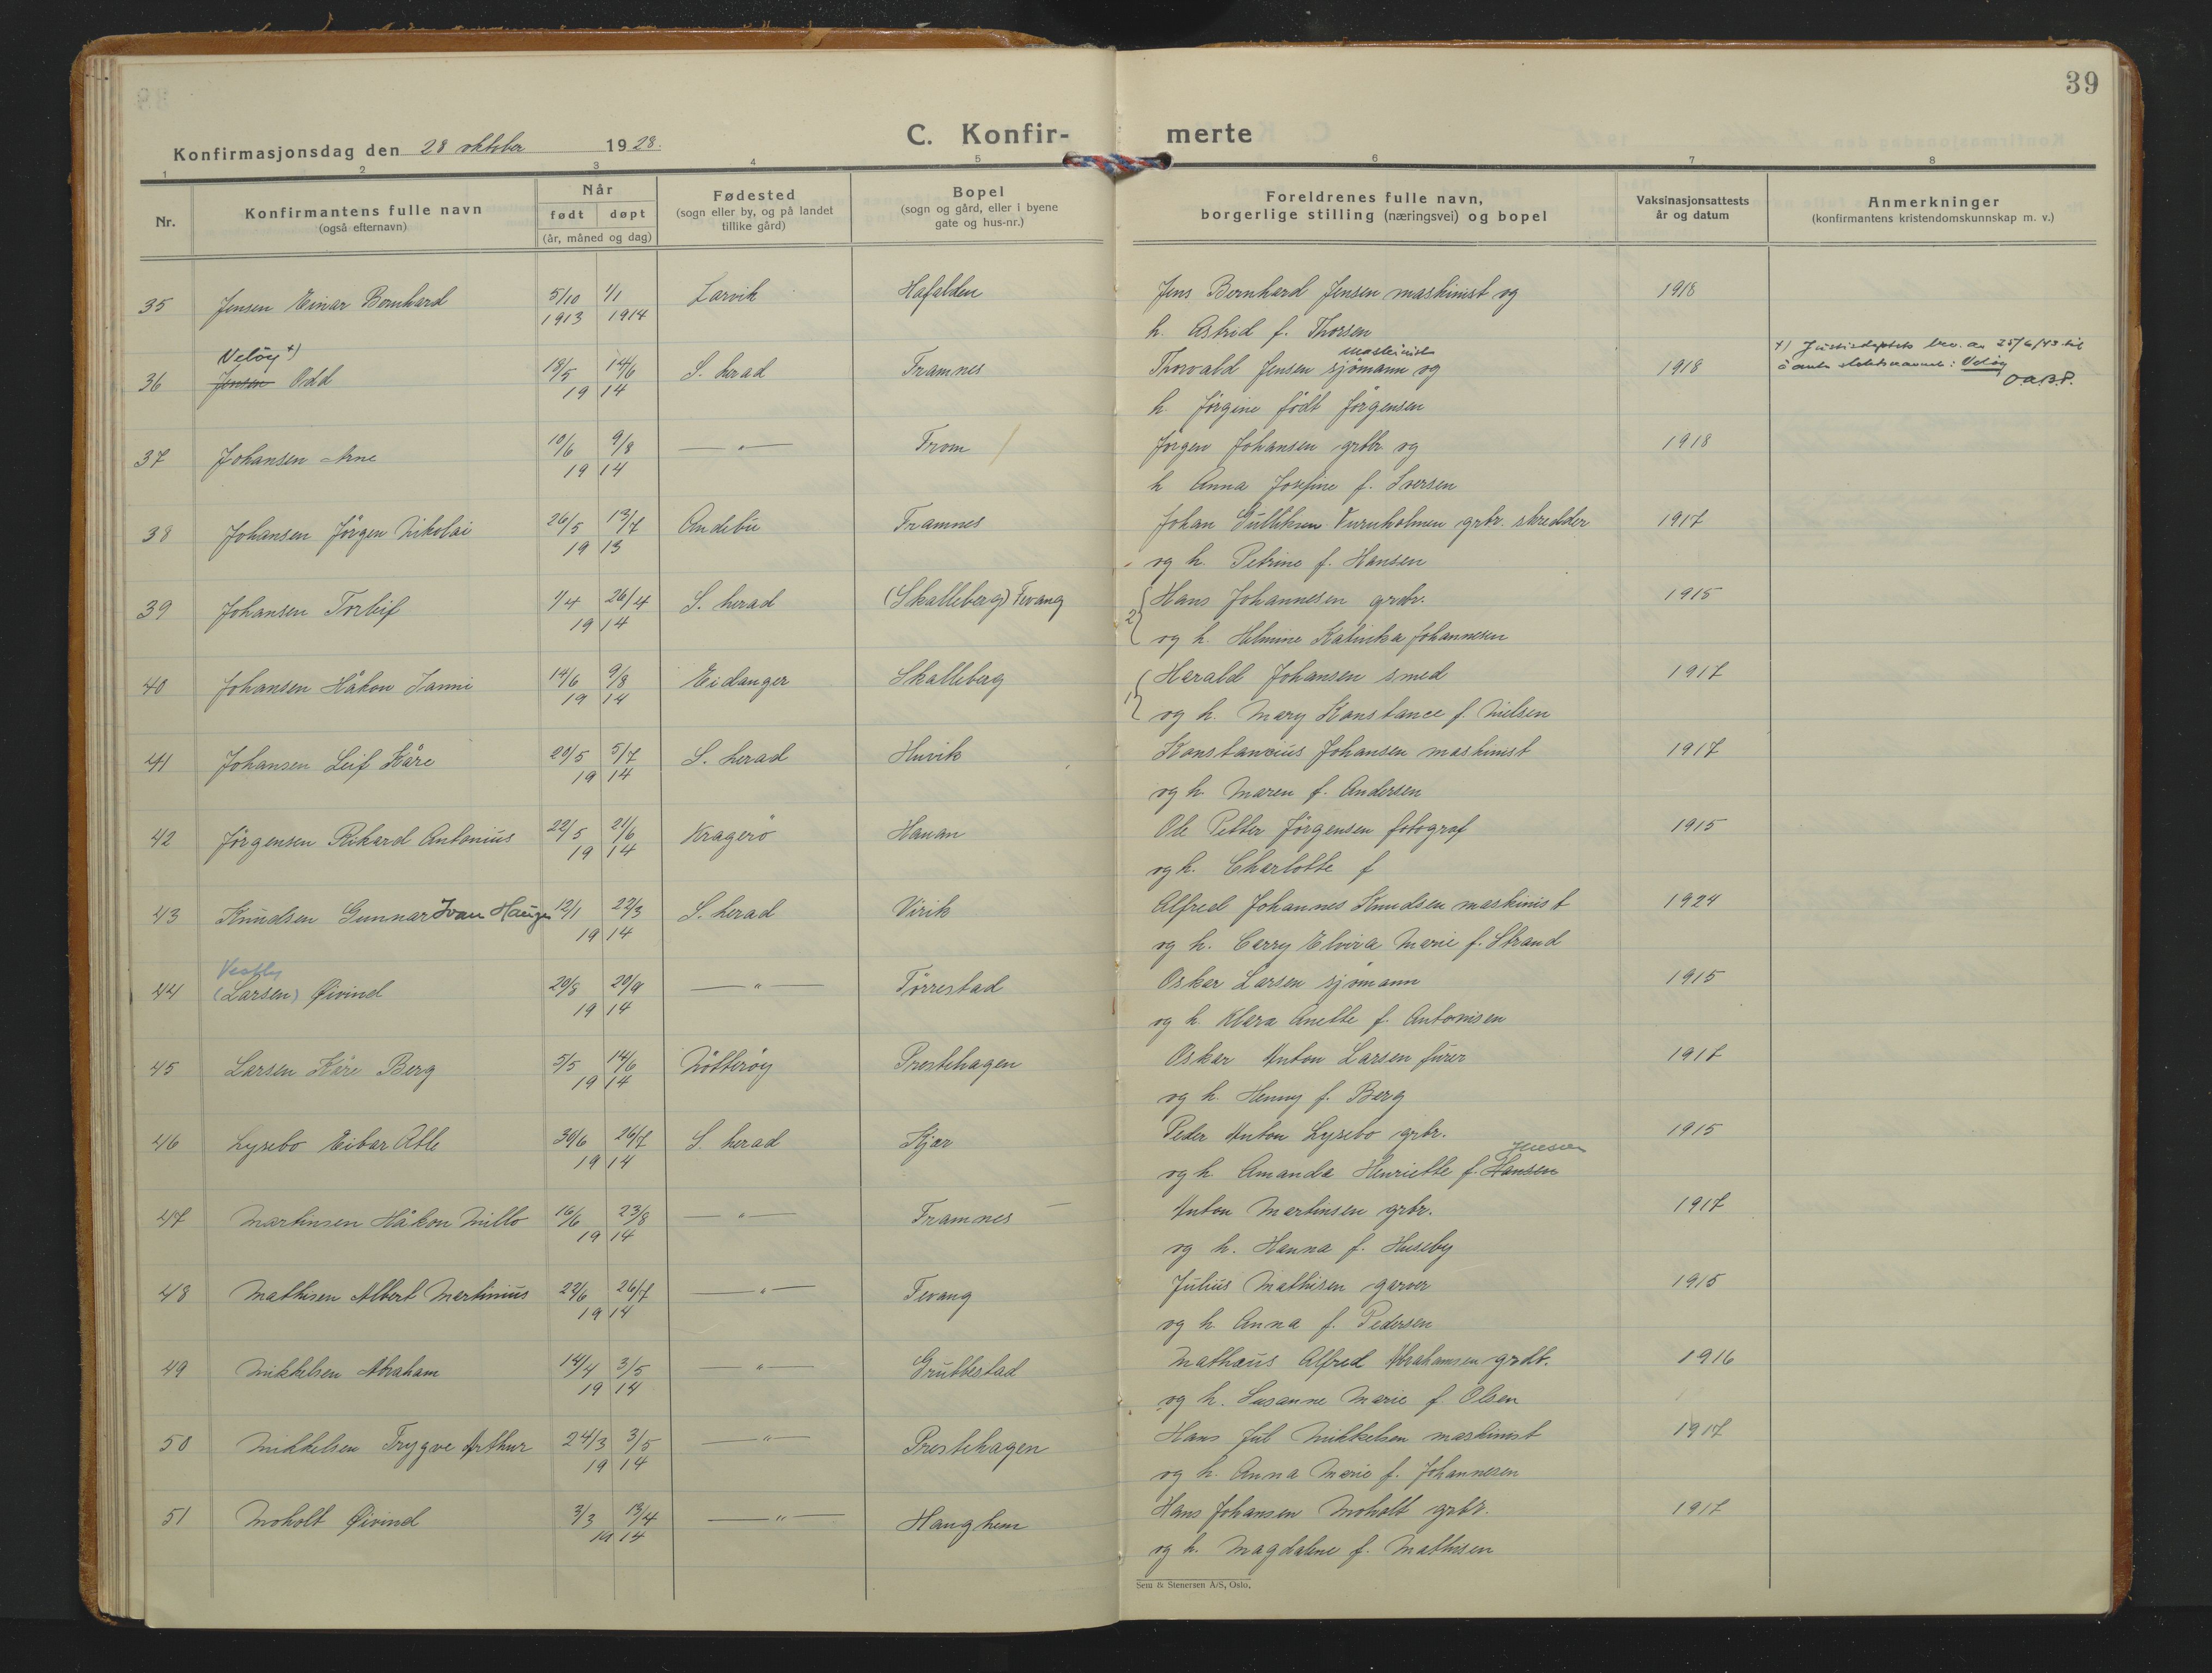 39
Konfirmasjonsdag den 28 oktober 1928.
C. Konfir- merte
1 2 3 4 5 6 7 8
Nr.
Konfirmantens fulle navn
(også efternavn)
Når
født døpt
(år, måned og dag)
Fødested
(sogn eller by, og på landet
tillike gård)
Bopel
(sogn og gård, eller i byene
gate og hus-nr.)
Foreldrenes fulle navn,
borgerlige stilling (næringsvei) og bopel
Vaksinasjonsattests
år og datum
Anmerkninger
(konfirmantens kristendomskunnskap m. v.)
35 Jensen Einar Bernhard 5/10 1/1 Larvik Hafalden Jens Bernhard Jensen maskinist og 1918
1913 1914 h. Astrid f. Thorsen
Veløy +)
maskinist
36 Jensen Odd 18/5 14/6 S. herad Framnes Thorvald Jensen sjømann og 1918
+) av 25/6/43 til
å anta slektsnavnet: Veløy
O.a.B.P.
19 14 h. Jørgine født Jørgensen
37 Johansen Arne 10/6 9/8 — " — From Jørgen Johansen grbr. og 1918
19 14 h Anna Josefine f. Iversen
38 Johansen Jörgen Nikolai 26/5 13/7 Andebu Framnes Johan Gulliksen grbr. skredder 1917
19 13 og h. Petrine f. Hansen
39 Johansen Torleif 1/4 26/4 S. herad (Skalleberg) Fevang 2 Hans Johannesen grbr. 1915
19 14 og h. Helmine Katinka Johannesen
40 Johansen Håkon Janni 14/6 9/8 Eidanger Skalleberg 1 Harald Johansen smed 1917
19 14 og h. Mary Konstance f. Nielsen
41 Johansen Leif Kåre 20/5 5/7 S. herad Huvik Konstancius Johansen maskinist 1917
19 14 og h. Maren f. Andersen
42 Jörgensen Rikard Antonius 22/5 21/6 Kragerö Hanan Ole Petter Jörgensen fotograf 1915
19 14 og h. Charlotte f
43 Knudsen Gunnar Ivan Haugen 12/1 22/3 S. herad Virik Alfred Johannes Knudsen maskinist 1924
19 14 og h. Carry Elvira Marie f. Strand
Vestby
44 (Larsen) Øivind 20/8 20/9 — " — Törrestad Oskar Larsen sjömann 1915
19 14 og h Klara Anette f. Antonisen
45 Larsen Kåre Berg 5/5 14/6 Nötteröy Prestehagen Oskar Anton Larsen furer 1917
19 14 og h. Henny f. Berg
46 Lysebo Eibar Atle 30/6 26/7 S. herad Kjær Peder Anton Lysebo grbr. 1915
19 14 og h. Amanda Henriette f. Hansen
47 Martinsen Håkon Millo 16/6 23/8 — " — Framnes Anton Martinsen grbr. 1917
19 14 og h. Hanna f. Huseby
48 Mathisen Albert Martinius 22/6 26/7 — " — Fevang Julius Mathisen garver 1915
19 14 og h. Anna f. Pedersen
49 Mikkelsen Abraham 14/4 3/5 — " — Grubbestad Mathæus Alfred Abrahamsen grdb. 1916
19 14 og h. Susanne Marie f. Olsen
50 Mikkelsen Trygve Arthur 24/3 3/5 — " — Prestehagen Hans Jul Mikkelsen maskinist 1917
19 14 og h. Anna Marie f. Johannesen
51 Moholt Øivind 3/3 13/4 — " — Haughem Hans Johansen Moholt grbr. 1917
19 14 og h. Magdalene f. Mathisen
Sem & Stenersen A/S, Oslo.